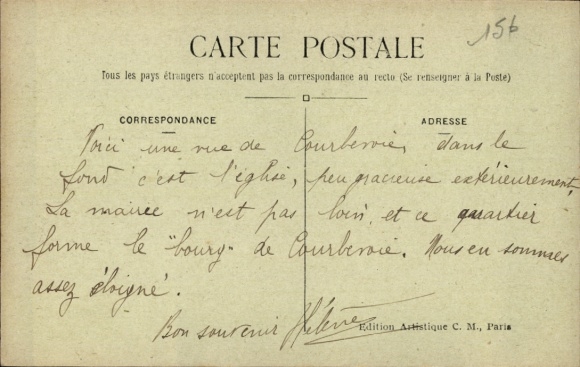 15b
CARTE POSTALE
Tous les pays étrangers n'acceptent pas la correspondance au recto (Se renseigner à la Poste)
CORRESPONDANCE
ADRESSE
Voici une rue de Courbevoie, dans le
fond c'est l'église, peu gracieuse extérieurement,
La mairie n'est pas loin, et ce quartier
forme le "bourg" de Courbevoie. Nous en sommes
assez éloigné.
Bon souvenir Hélène
Edition Artistique C. M., Paris